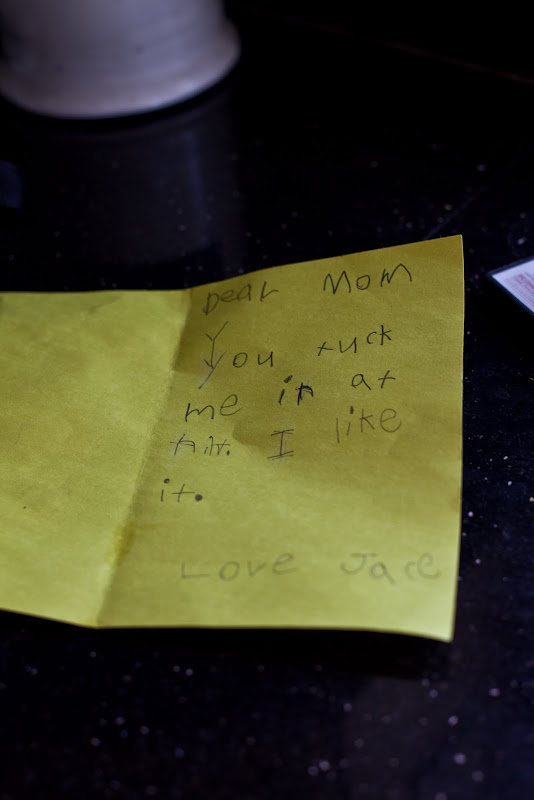 Dear Mom
You tuck
me in at
nit. I like
it.
Love Jace